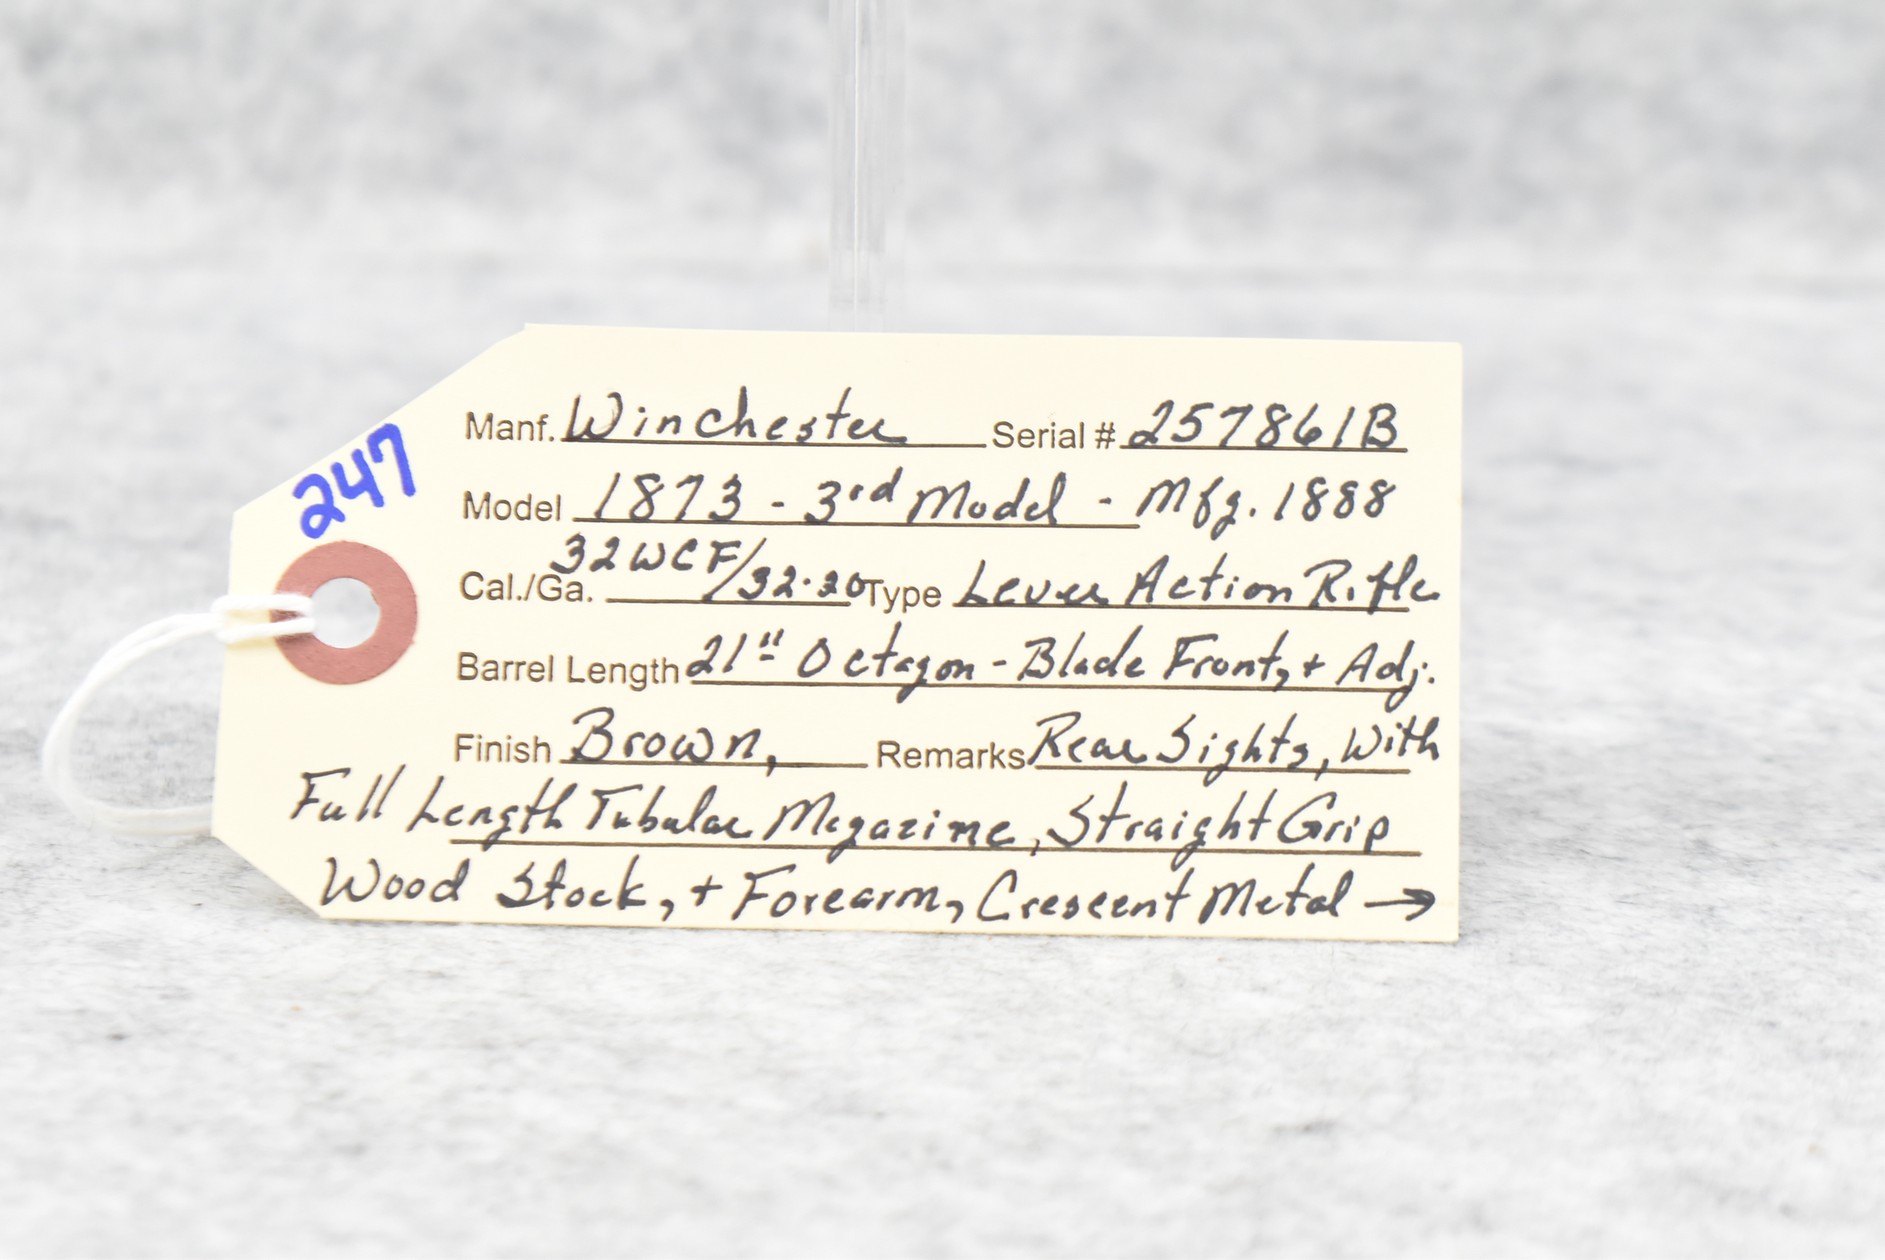 247
Manf. Winchester Serial # 257861B
Model 1873 - 3rd Model - Mfg. 1888
Cal./Ga. 32WCF/32.20 Type Lever Action Rifle
Barrel Length 21" Octagon - Blade Front, + Adj.
Finish Brown, Remarks Rear Sights, With
Full Length Tubular Magazine, Straight Grip
Wood Stock, + Forearm, Crescent Metal →